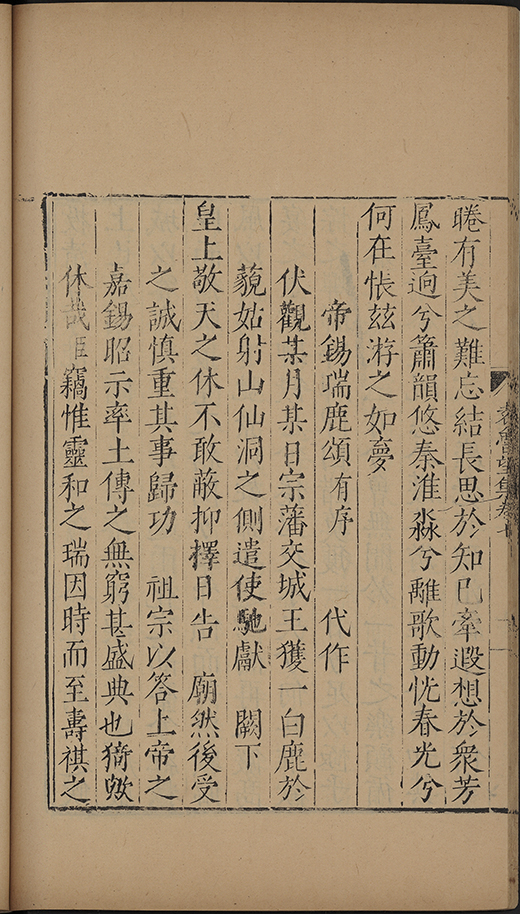 睠有美之難忘結長思於知巳牽遐想於衆芳
鳳臺逈兮簫韻悠秦淮淼兮離歌動恍春光兮
何在悵茲游之如夢
帝錫瑞鹿頌有序　代作
伏觀某月某日宗藩交城王獲一白鹿於
藐姑射山仙洞之側遣使馳獻　闕下
皇上敬天之休不敢蔽抑擇日告　廟然後受
之誠慎重其事歸功　祖宗以答上帝之
嘉錫昭示率土傳之無窮甚盛典也猗歟
休哉臣竊惟靈和之瑞因時而至壽祺之
袁魯望集卷